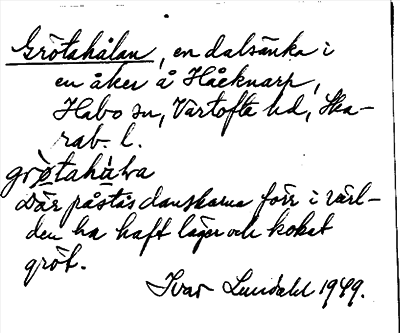 Grötahålan, en dalsänka i
en åker å Håeknarp,
Habo sn, Vartofta hd, Ska-
rab. l.
grøtahåla
Där påstås danskarna förr i värl-
den ha haft läger och kokat
gröt.
Ivar Lundahl 1949.